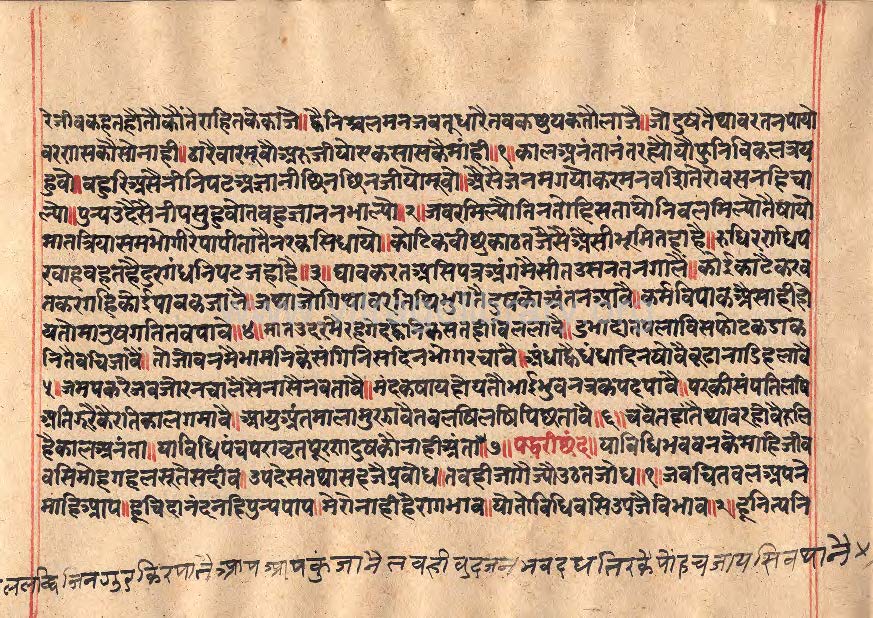 रेजीवकहतहौंतौकौंतेराहितकेकाजै॥ह्वैनिश्चलमनजबतूधारैतबकछुयकतोलाजै॥जौदुषतैथावरतनपायो
वरणसकौंसोनाही॥ठारैवारमूवोअरुजीयोएकसासकैमाही॥१॥कालअनंतानंतरह्योयौंफुनिविकलत्रय
हुवो॥बहुरिअसैनीनिपटअज्ञानीछिनछिनजीयोमूवो॥अैसेंजनमगयोकरमनवसितेरोवसनहिचा
ल्यो॥पुन्यउदैसैनीपसुहुवोतबहुज्ञाननभाल्यो॥२॥जबरमिल्योतिनतोहिसतायोनिबलमिल्योतैषायो
मातत्रियासमभोगीरेपापीतातैनरकसिधायो॥कोटिकबीछुकाटतजैसैअैसीभूमितहांहै॥रुधिरराधिप
रवाहबहतहैदुरगंधनिपटजहाहै॥३॥घावकरतअसिपत्रअंगमैसीतउसनतनगालै॥कोईकाटैकरव
तकरगहिकोईपावकजालै॥जथाजोगिथावरतिथिभुगतैदुषकोअंतनआवै॥कर्मविपाकअैसाहीहो
यतोमानुषगतितबपावै॥४॥मातउदरमैरहै निकसतहीबिललावै॥
नितैबचिजावै॥तौजोबनमैभामनिकेसंगिनिसदिनभोगरचावै॥अंधाह्वैधंधादिनषोवैबूढानाडिहलावै
५॥जमपकरैजबजोरनचालैसेनासेनबतावै॥मंदकषायहोयतौभाईभुवनत्रकपदपावै॥परकीसंपतिलषि
अतिझूरैकैरतिकालगमावै॥आयुअंतमालामुरझावैतबलषिलषिपिछतावै॥६॥चवैतहांतैथावरहोवैरुलि
हैकालअनंता॥याविधिपंचपरावृतपूरणदुषकोनाहीअंता॥७॥पद्धरीछंद॥याविधिभवबनकेमाहिजीव
वसिमोहगहलसूतेसदीव॥उपदेसतथासहजैप्रबोध॥तबहीजागैज्यौउठतजोध॥१॥जबचिंतवतअपने
माहिआप॥हूचिदानंदनहिपुन्यपाप॥मेरोनाहीहैरागभाव॥योतोविधिबसिउपजैविभाव॥२॥हूनित्यनि
ललब्धिजिनगुरुकिरपातैआपआपकुंजानैतबहीबुदजनभवदधतिरकैपोंहचजायसिवथानै×